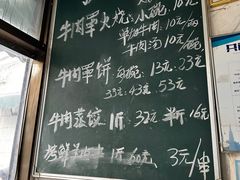 牛肉罩火烧:小碗:10元
单加牛肉:10元/两
牛肉汤:10元/碗
牛肉罩饼 每碗:13元:23元
33元:43元 53元
牛肉蒸饺 1斤:32元 半斤16元
1斤60元、3元/串